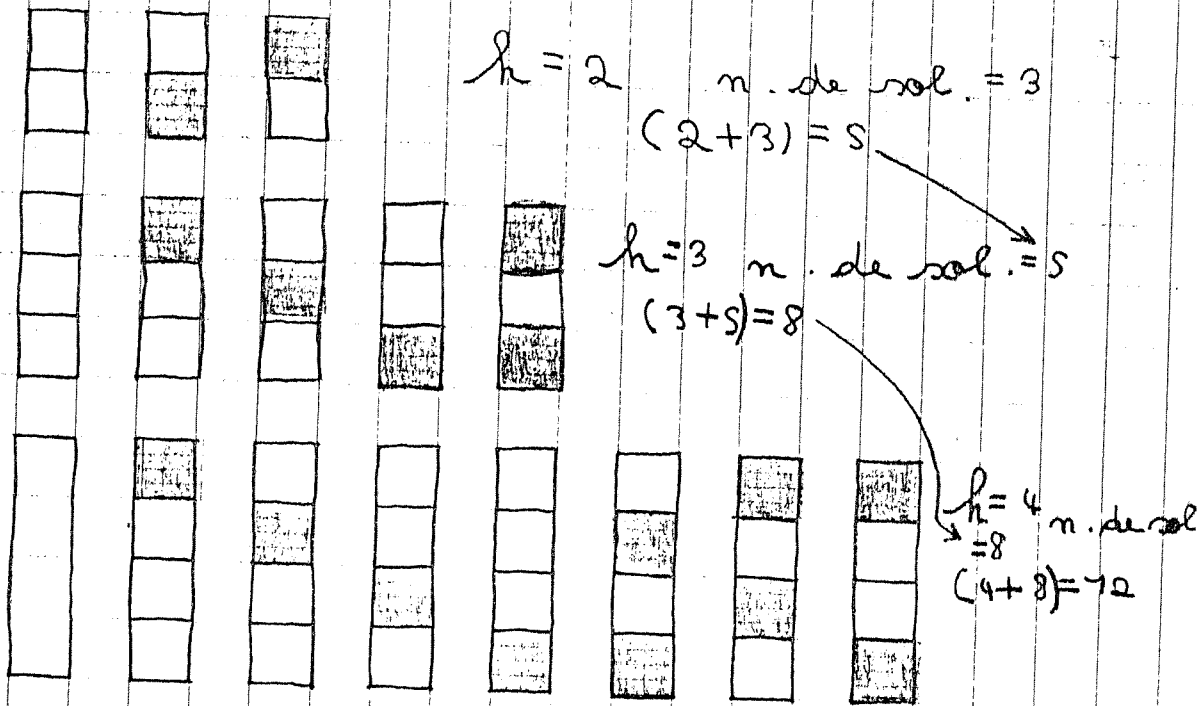 h = 2 n. de sol. = 3
(2+3) = 5
h=3 n. de sol. = 5
(3+5)=8
h=4 n. de sol
=8
(4+8)=12